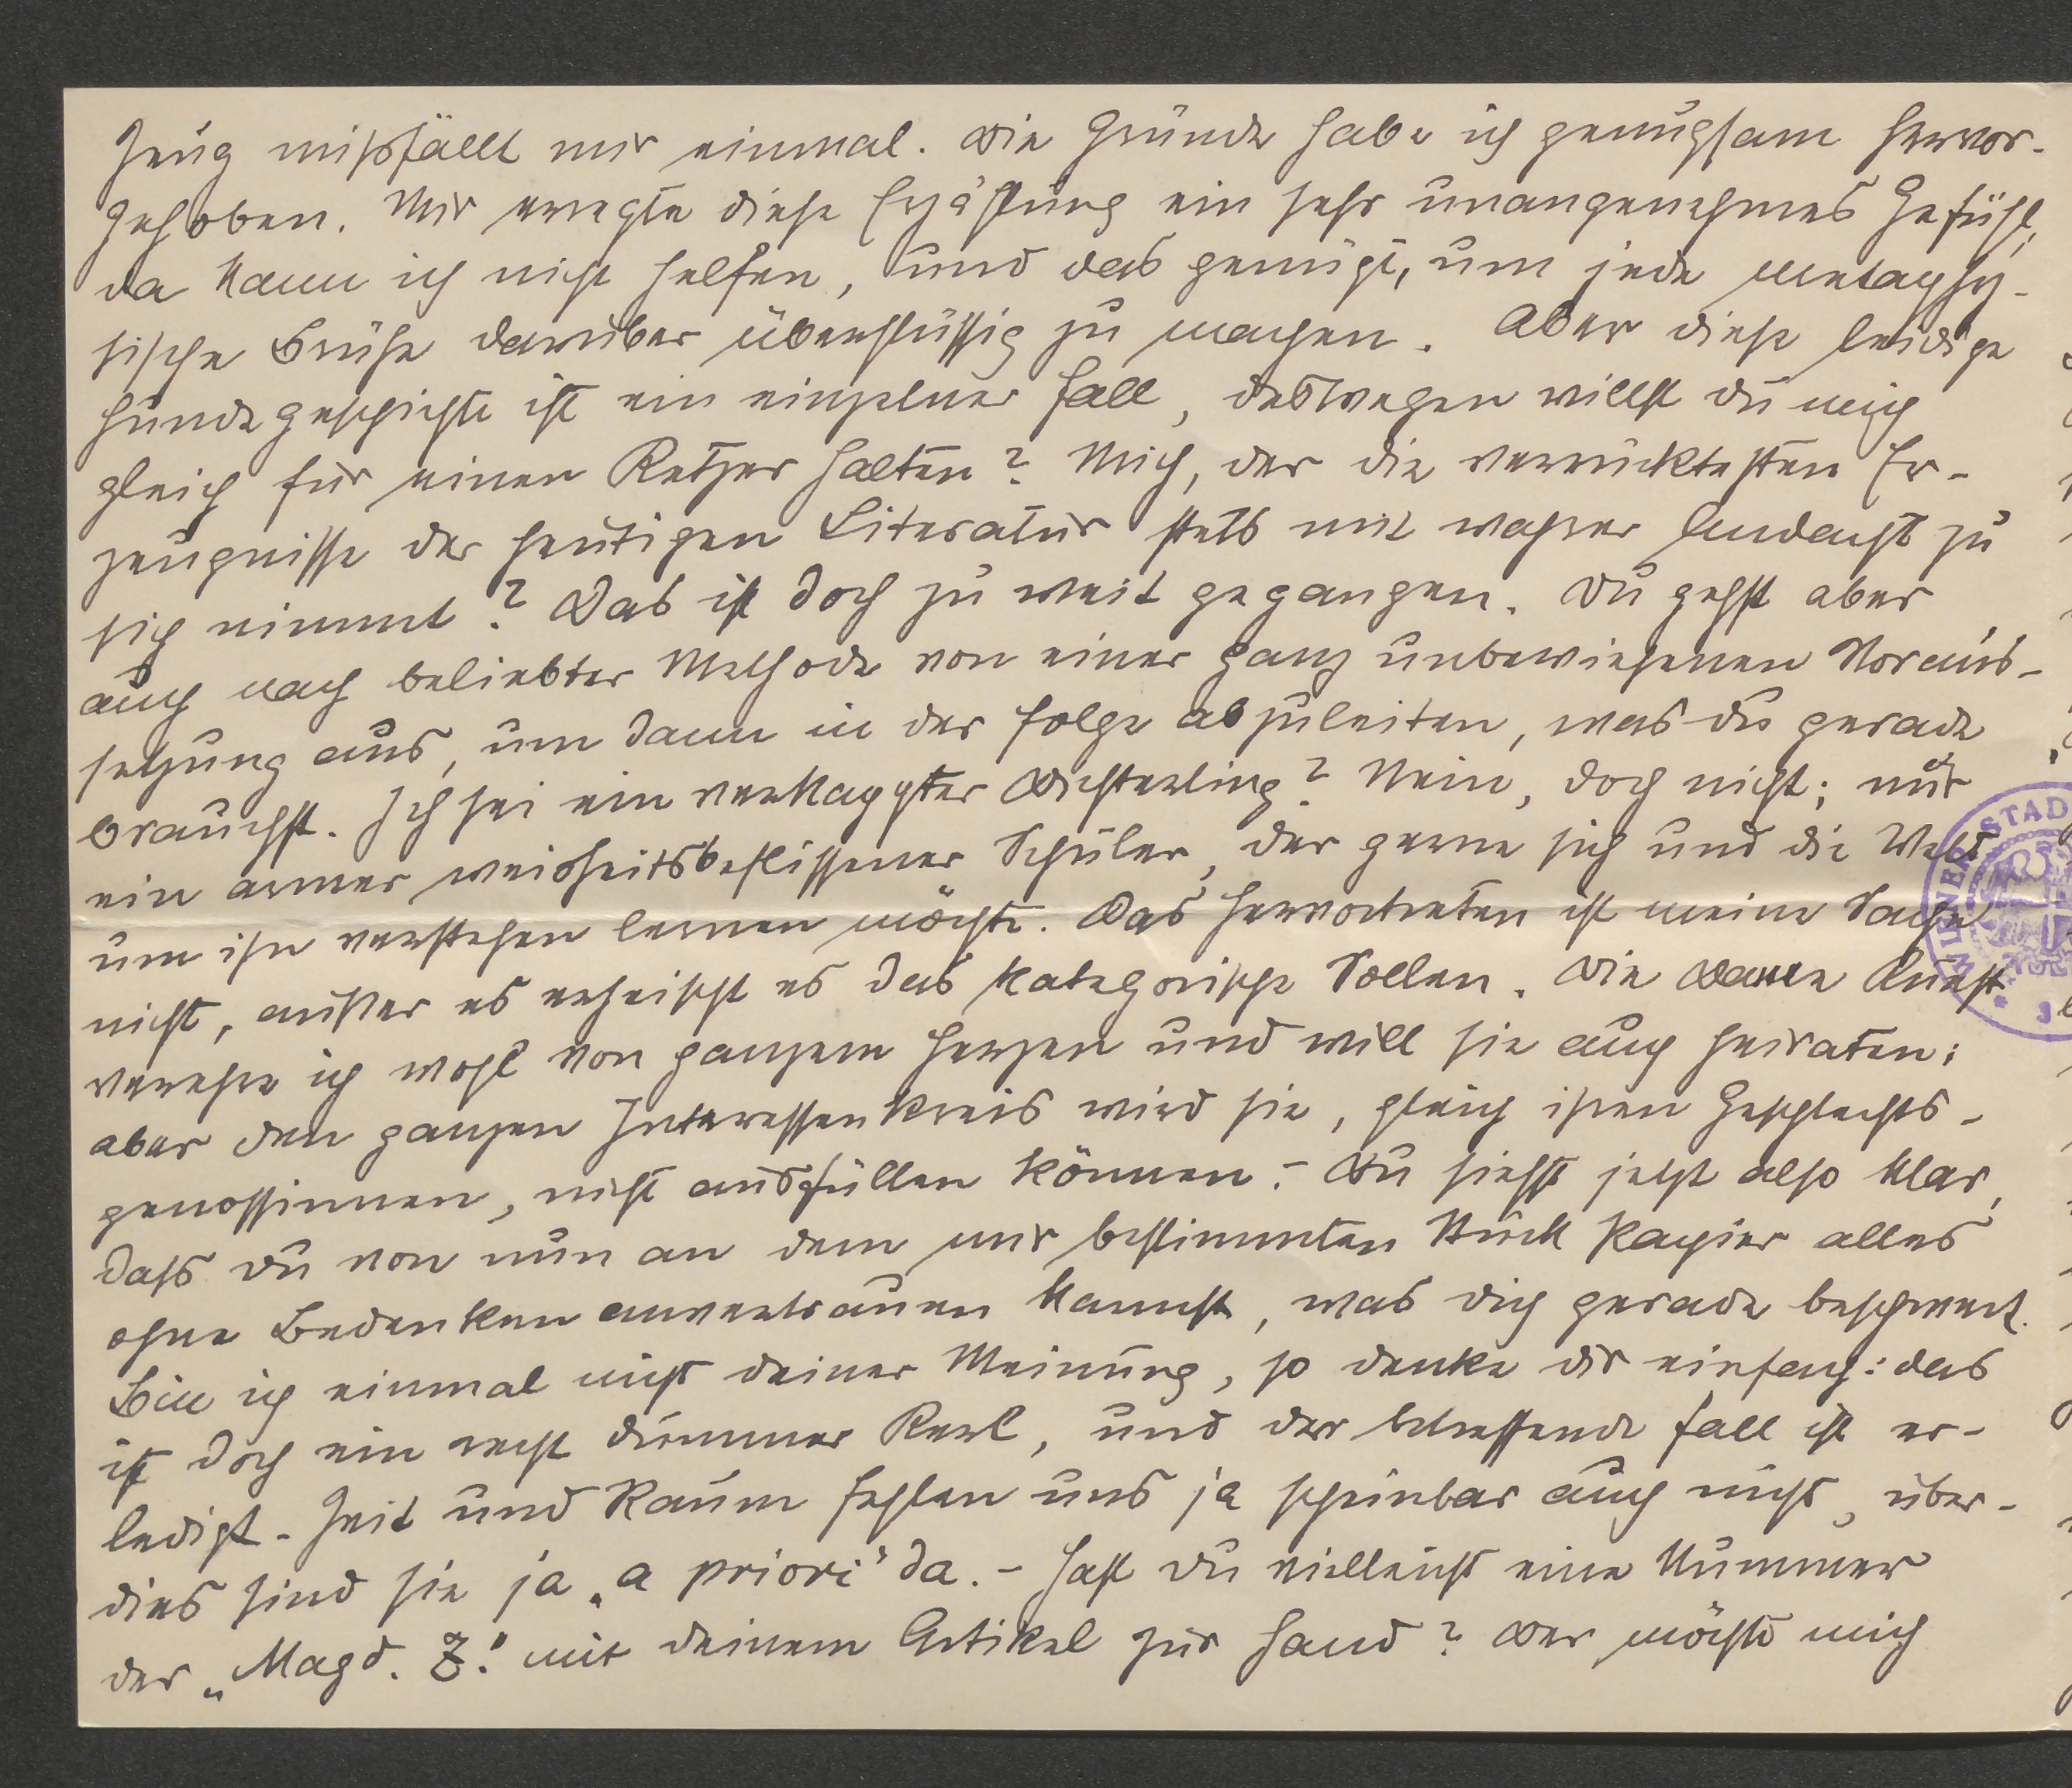 Zeug mißfällt mir einmal. Die Gründe habe ich genugsam hervor-
gehoben. Mir erregte diese Erzählung ein sehr unangenehmes Gefühl,
da kann ich nicht helfen, und das genügt, um jede metaphy-
sische Brühe darüber überflüssig zu machen. Aber diese leidige
Hundegeschichte ist ein einzelner Fall, deswegen willst du mich
gleich für einen Ketzer halten? Mich, der die verrücktesten Er-
zeugnisse der heutigen Literatur stets mit wahrer Andacht zu
sich nimmt? Das ist doch zu weit gegangen. Du gehst aber
auch nach beliebter Methode von einer ganz unbewiesenen Voraus-
setzung aus, um dann in der Folge abzuleiten, was du gerade
brauchst. Ich sei ein verkappter Dichterling? Nein, doch nicht; nur
ein armer weisheitsbeflissener Schüler, der gerne sich und die Welt
um ihn verstehen lernen möchte. Das Hervortreten ist meine Sache
nicht, außer es erheischt es das kategorische Sollen. Die Dame Kunst
verehre ich wohl von ganzem Herzen und will sie auch heiraten;
aber den ganzen Interessenkreis wird sie, gleich ihren Geschlechts-
genossinnen, nicht ausfüllen können. – Du siehst jetzt also klar,
dass du von nun an dem mir bestimmten Stück Papier alles
ohne Bedenken anvertrauen kannst, was dich gerade beschwert.
Bin ich einmal nicht deiner Meinung, so denke dir einfach: das
ist doch ein recht dummer Kerl, und der betreffende Fall ist er-
ledigt. Zeit und Raum fehlen uns ja scheinbar auch nicht, über-
dies sind sie ja „a priori" da. – Hast du vielleicht eine Nummer
der „Magd. Z." mit deinem Artikel zur Hand? Der möchte mich
WIENER STAD